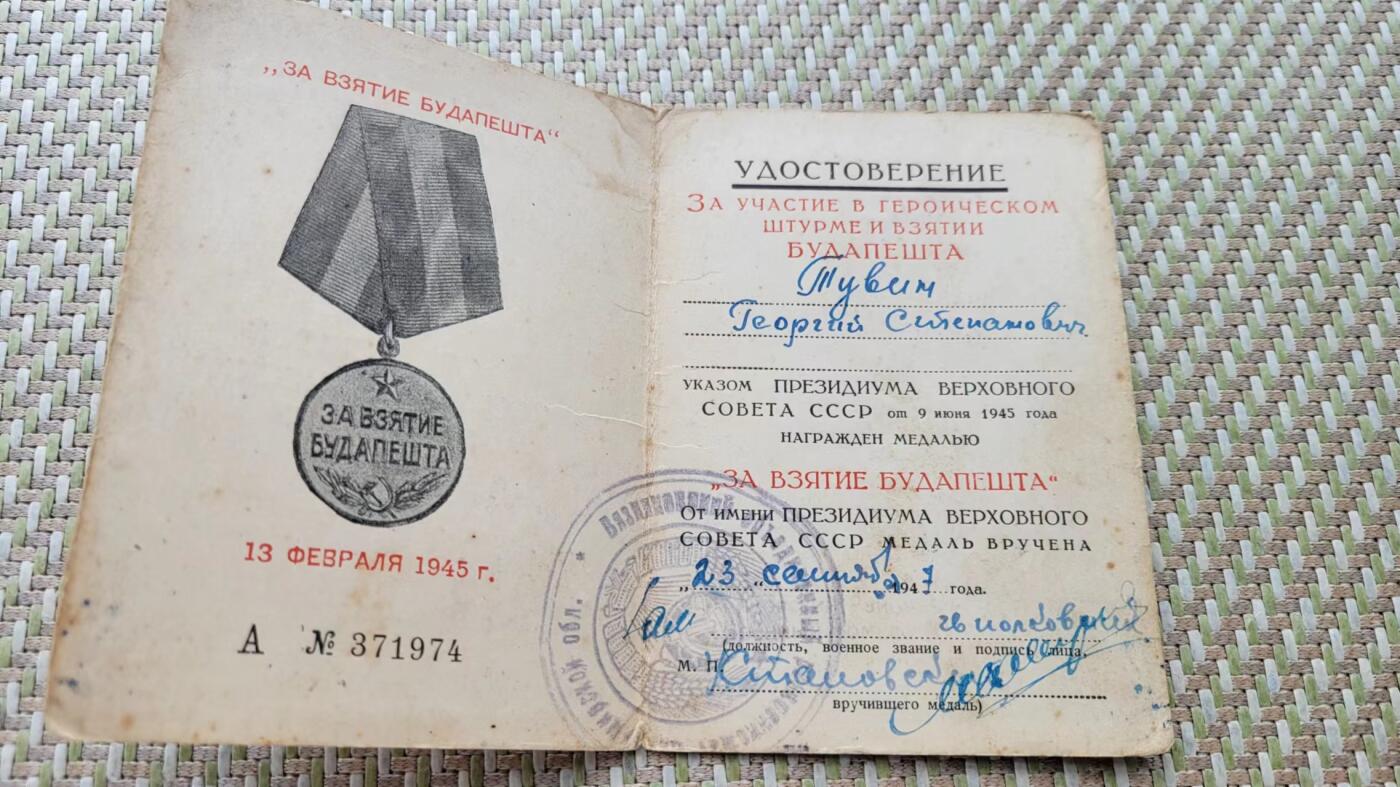 „ЗА ВЗЯТИЕ БУДАПЕШТА“
ЗА ВЗЯТИЕ
БУДАПЕШТА
13 ФЕВРАЛЯ 1945 г.
А № 371974
УДОСТОВЕРЕНИЕ
ЗА УЧАСТИЕ В ГЕРОИЧЕСКОМ
ШТУРМЕ И ВЗЯТИИ
БУДАПЕШТА
Тувин
Георгий Степанович
УКАЗОМ ПРЕЗИДИУМА ВЕРХОВНОГО
СОВЕТА СССР от 9 июня 1945 года
НАГРАЖДЕН МЕДАЛЬЮ
„ЗА ВЗЯТИЕ БУДАПЕШТА“
ОТ ИМЕНИ ПРЕЗИДИУМА ВЕРХОВНОГО
СОВЕТА СССР МЕДАЛЬ ВРУЧЕНА
„23 сентября 1947 года.
гв полковник
(должность, военное звание и подпись лица,
М. П.
вручившего медаль)
обл. *